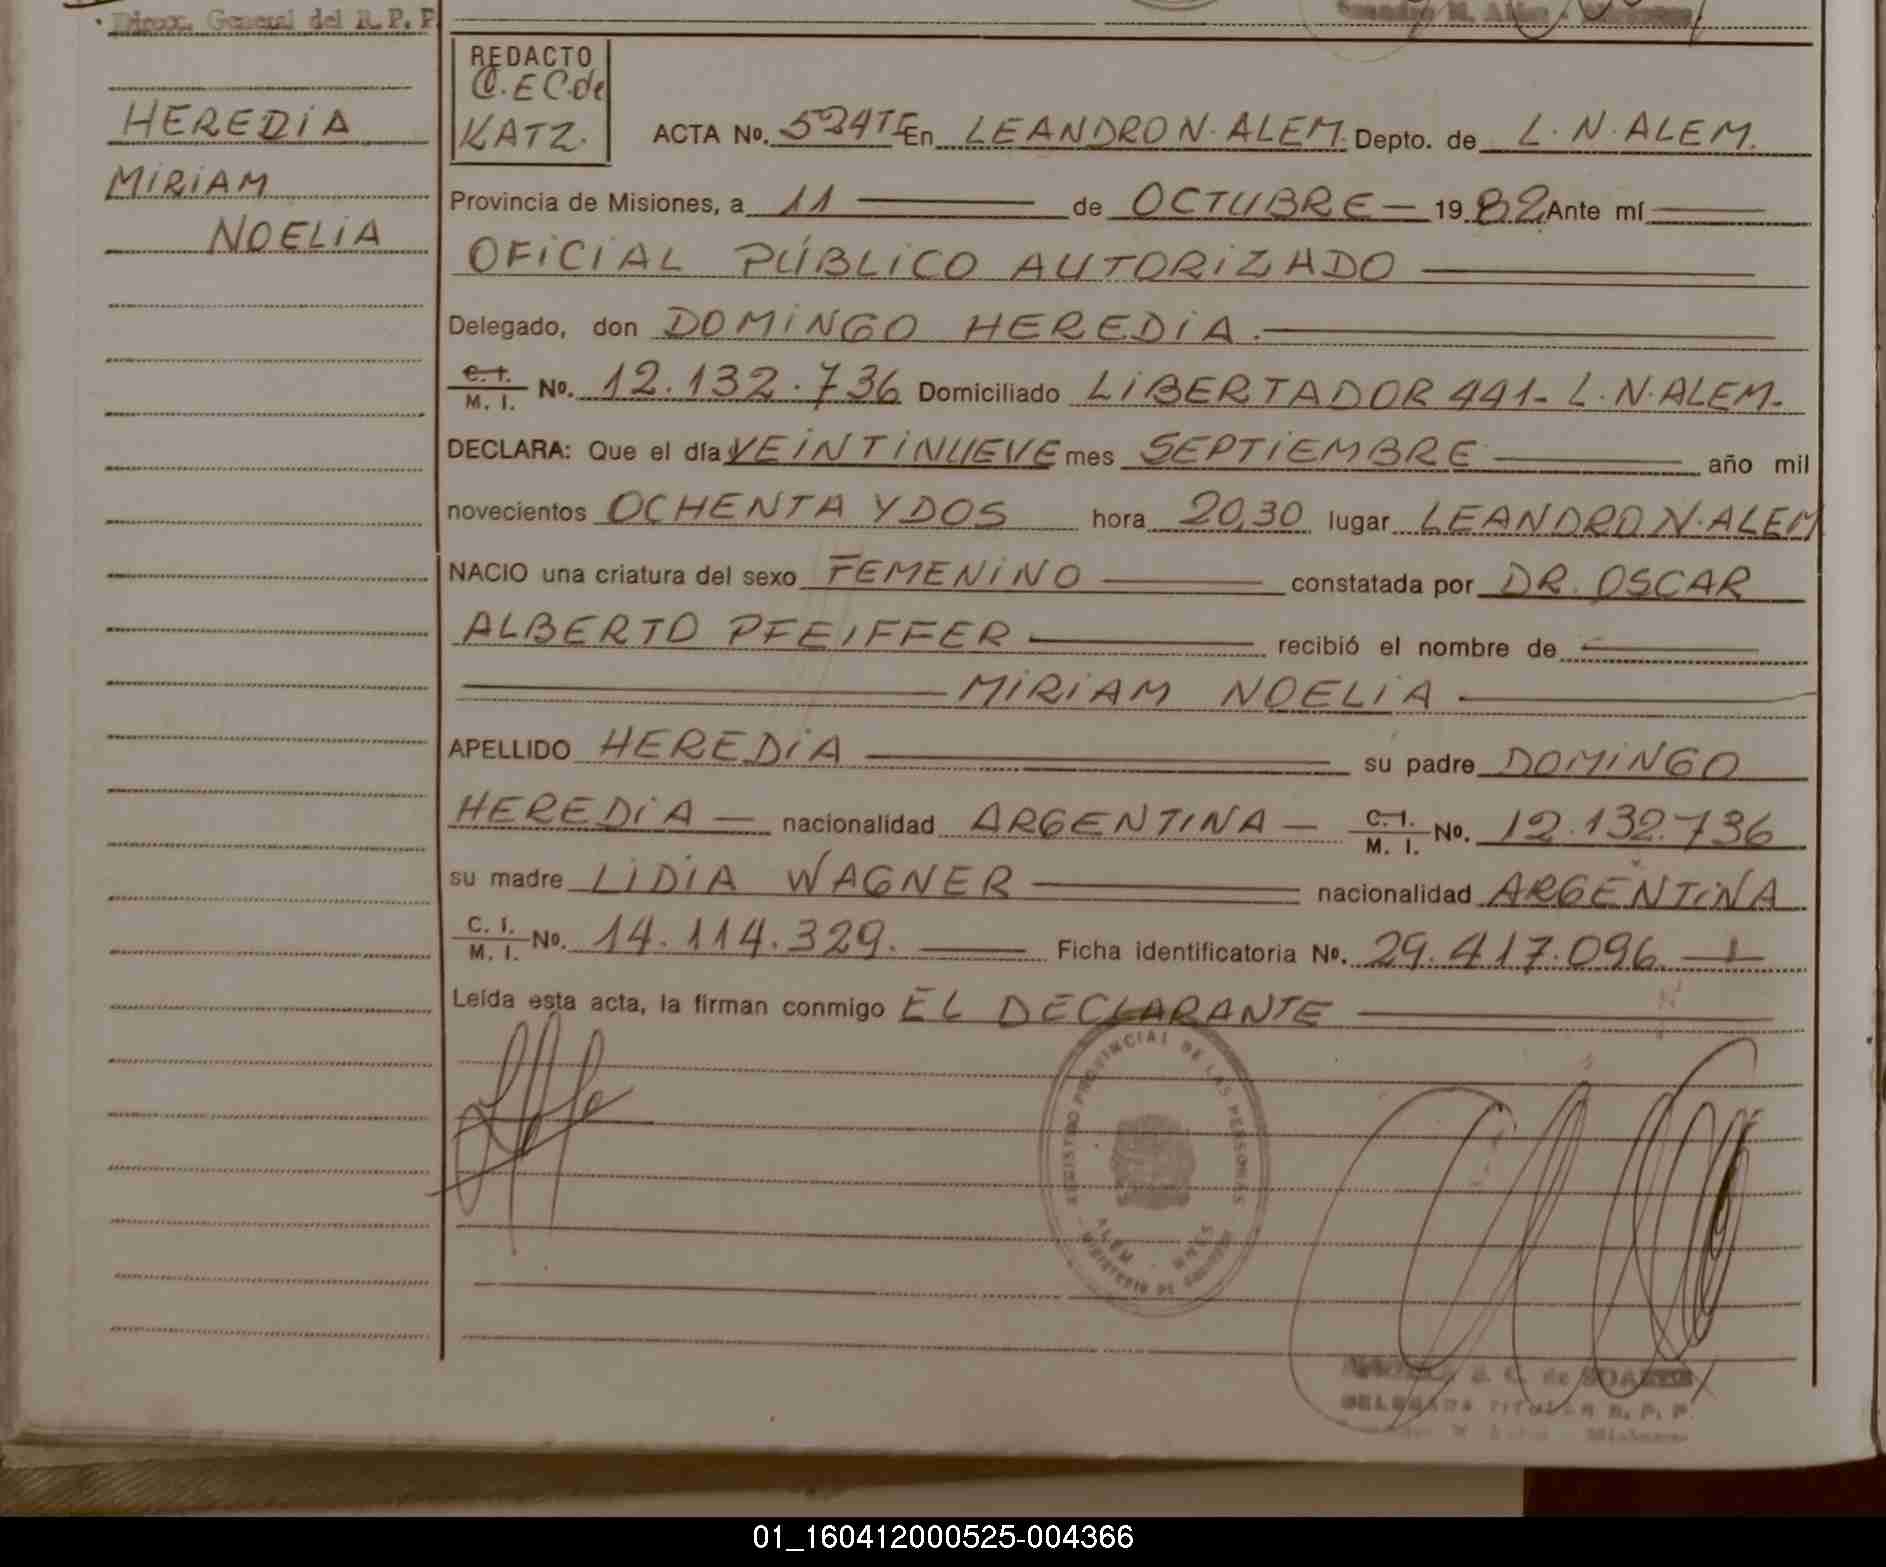 Direcc. General del R. P. P.
HEREDIA
MIRIAM
NOELIA
REDACTO
C. E C. de
KATZ.
ACTA No. 524TE En LEANDRO N. ALEM. Depto. de L. N. ALEM.
Provincia de Misiones, a 11 de OCTUBRE - 1982 Ante mí
OFICIAL PÚBLICO AUTORIZADO
Delegado, don DOMINGO HEREDIA.
C. I. M. I. No. 12.132.736 Domiciliado LIBERTADOR 441- L. N. ALEM.
DECLARA: Que el día VEINTINUEVE mes SEPTIEMBRE año mil
novecientos OCHENTA Y DOS hora 20,30 lugar LEANDRO N. ALEM
NACIO una criatura del sexo FEMENINO constatada por DR. OSCAR
ALBERTO PFEIFFER recibió el nombre de
MIRIAM NOELIA
APELLIDO HEREDIA su padre DOMINGO
HEREDIA — nacionalidad ARGENTINA — C. I. M. I. No. 12.132.736
su madre LIDIA WAGNER nacionalidad ARGENTINA
C. I. M. I. No. 14.114.329. Ficha identificatoria No. 29.417.096.
Leída esta acta, la firman conmigo EL DECLARANTE
REGISTRO PROVINCIAL DE LAS PERSONAS
ALEM - MNES
MINISTERIO DE GOBIERNO
S. C. de
DELEGADA TITULAR R. P. P.
Misiones
01_160412000525-004366